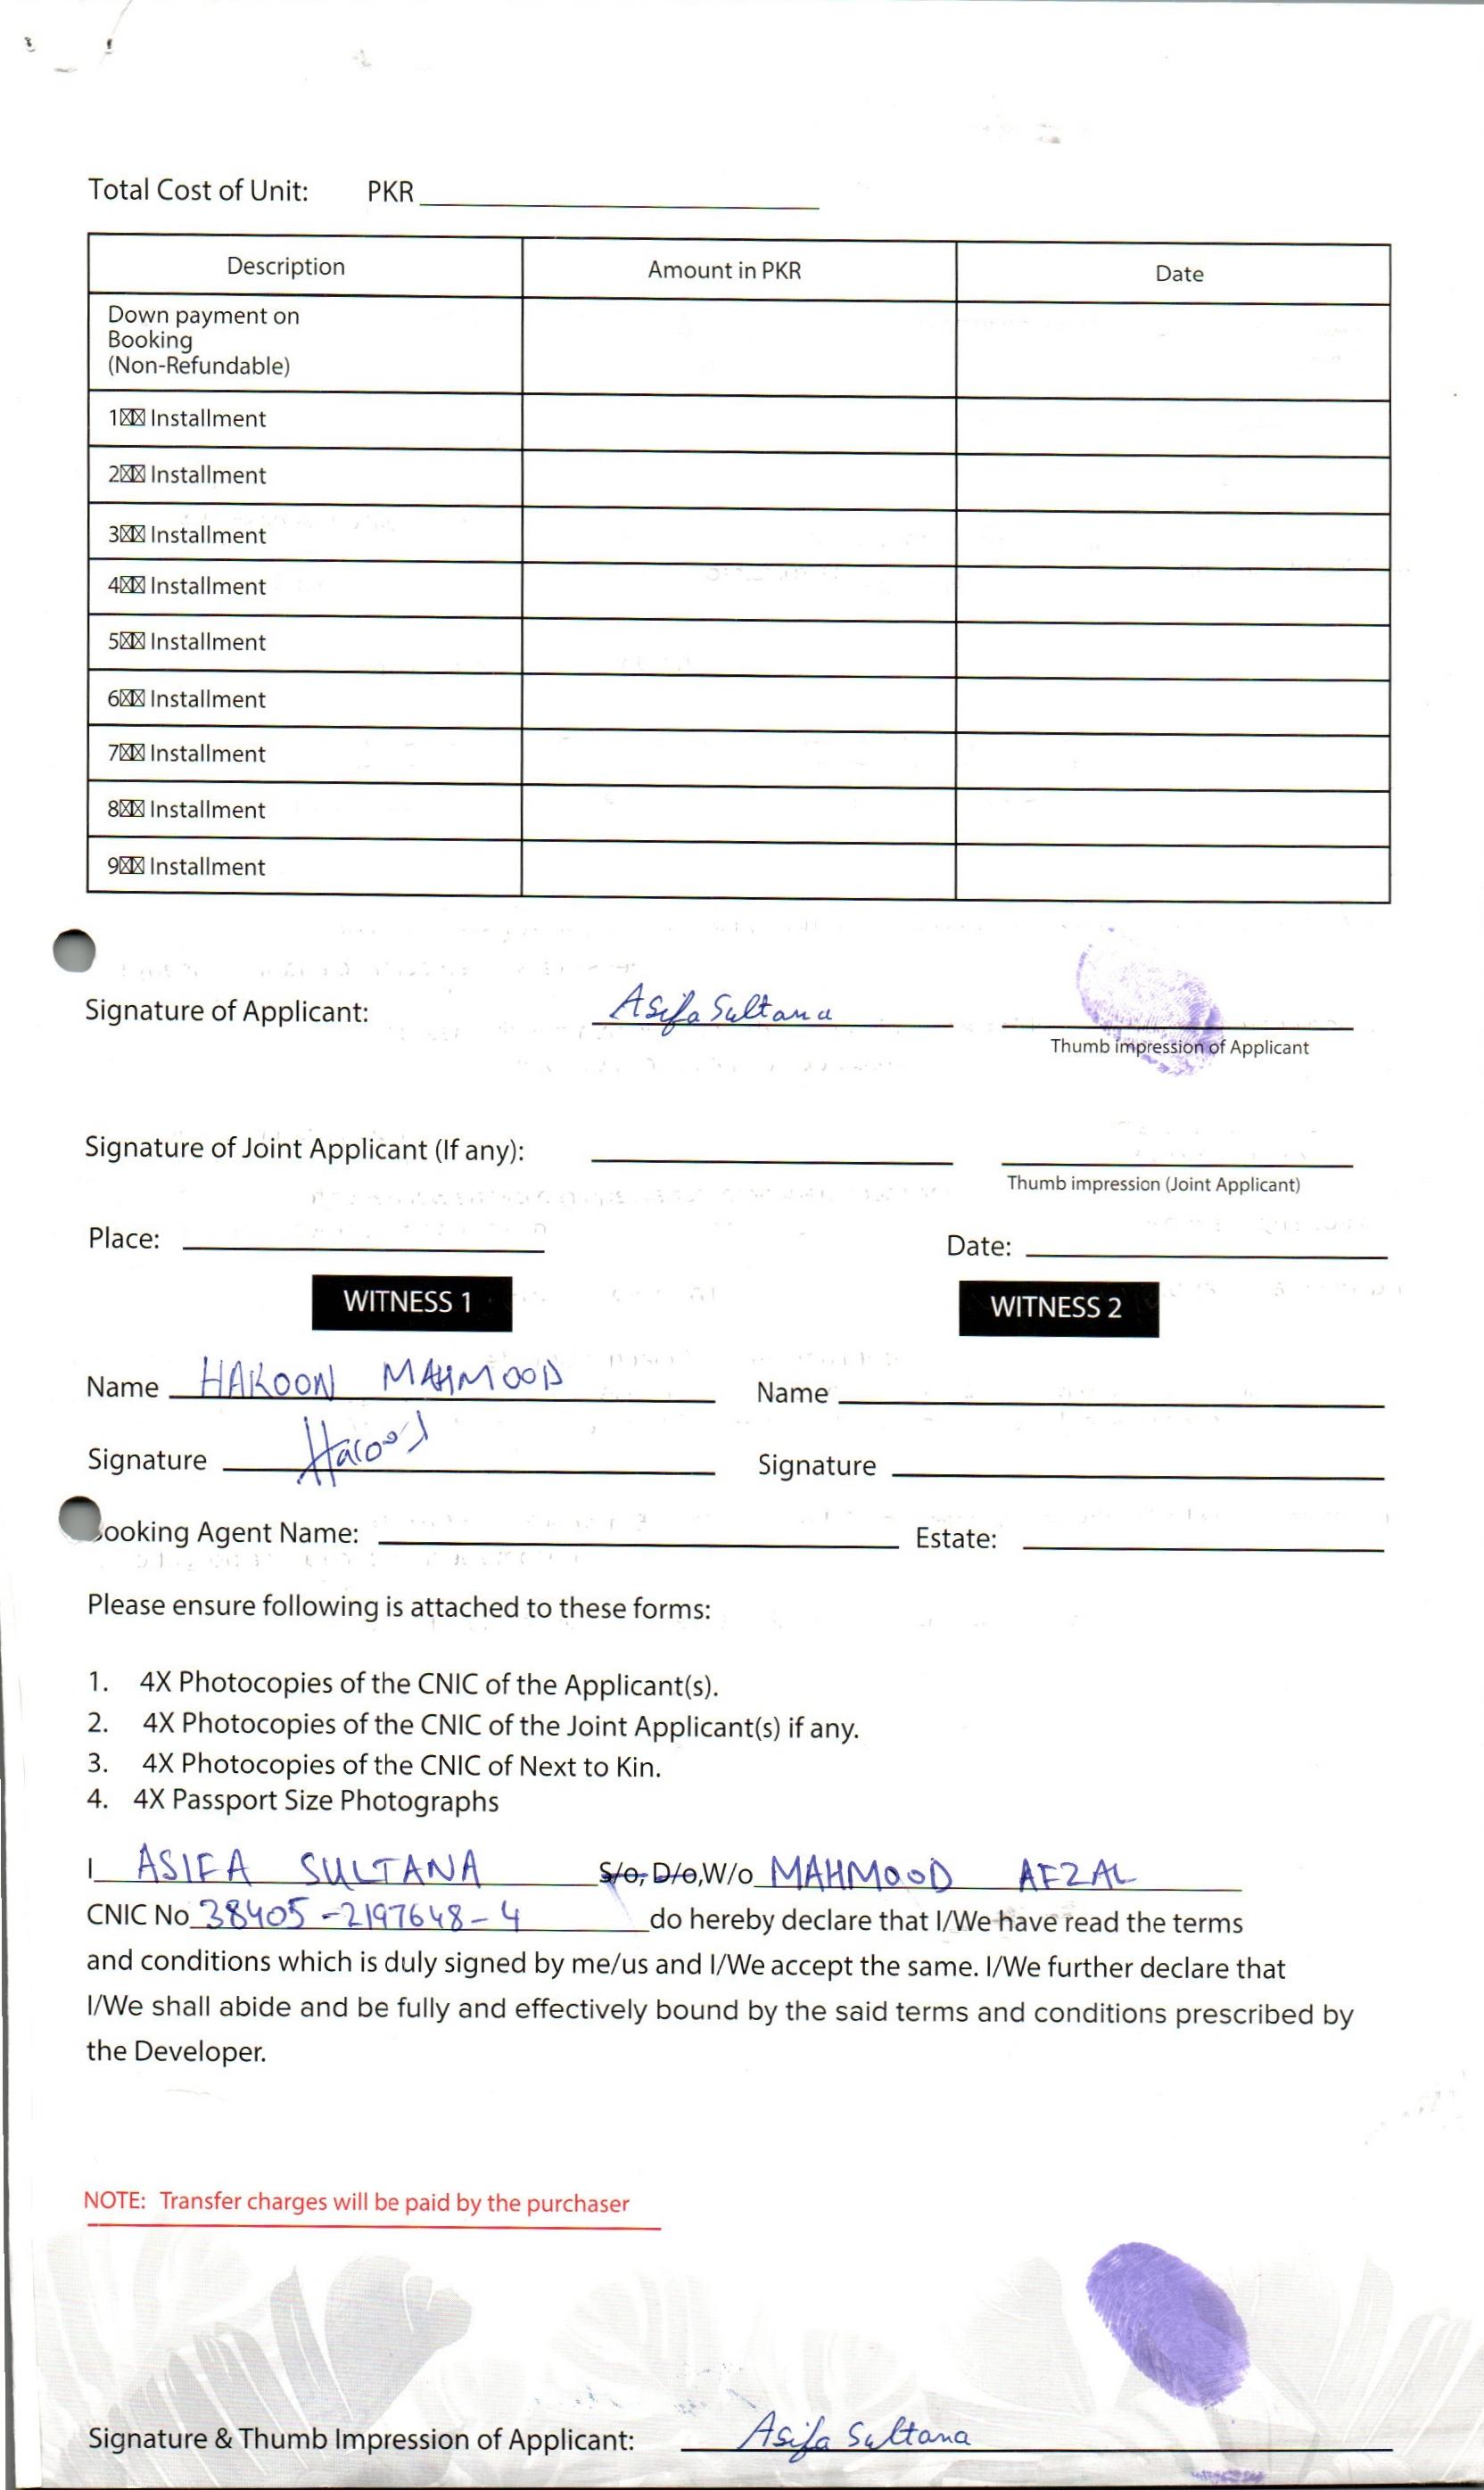 Total Cost of Unit: PKR
Description Amount in PKR Date
Down payment on
Booking
(Non-Refundable)
1☒☒ Installment
2☒☒ Installment
3☒☒ Installment
4☒☒ Installment
5☒☒ Installment
6☒☒ Installment
7☒☒ Installment
8☒☒ Installment
9☒☒ Installment
Signature of Applicant: Asifa Sultana
Thumb impression of Applicant
Signature of Joint Applicant (If any):
Thumb impression (Joint Applicant)
Place: Date:
WITNESS 1 WITNESS 2
Name HAROON MAHMOOD Name
Signature Haroon Signature
ooking Agent Name: Estate:
Please ensure following is attached to these forms:
1. 4X Photocopies of the CNIC of the Applicant(s).
2. 4X Photocopies of the CNIC of the Joint Applicant(s) if any.
3. 4X Photocopies of the CNIC of Next to Kin.
4. 4X Passport Size Photographs
I ASIFA SULTANA S/o, D/o,W/o MAHMOOD AFZAL
CNIC No 38405-2197648-4 do hereby declare that I/We have read the terms
and conditions which is duly signed by me/us and I/We accept the same. I/We further declare that
I/We shall abide and be fully and effectively bound by the said terms and conditions prescribed by
the Developer.
NOTE: Transfer charges will be paid by the purchaser
Signature & Thumb Impression of Applicant: Asifa Sultana